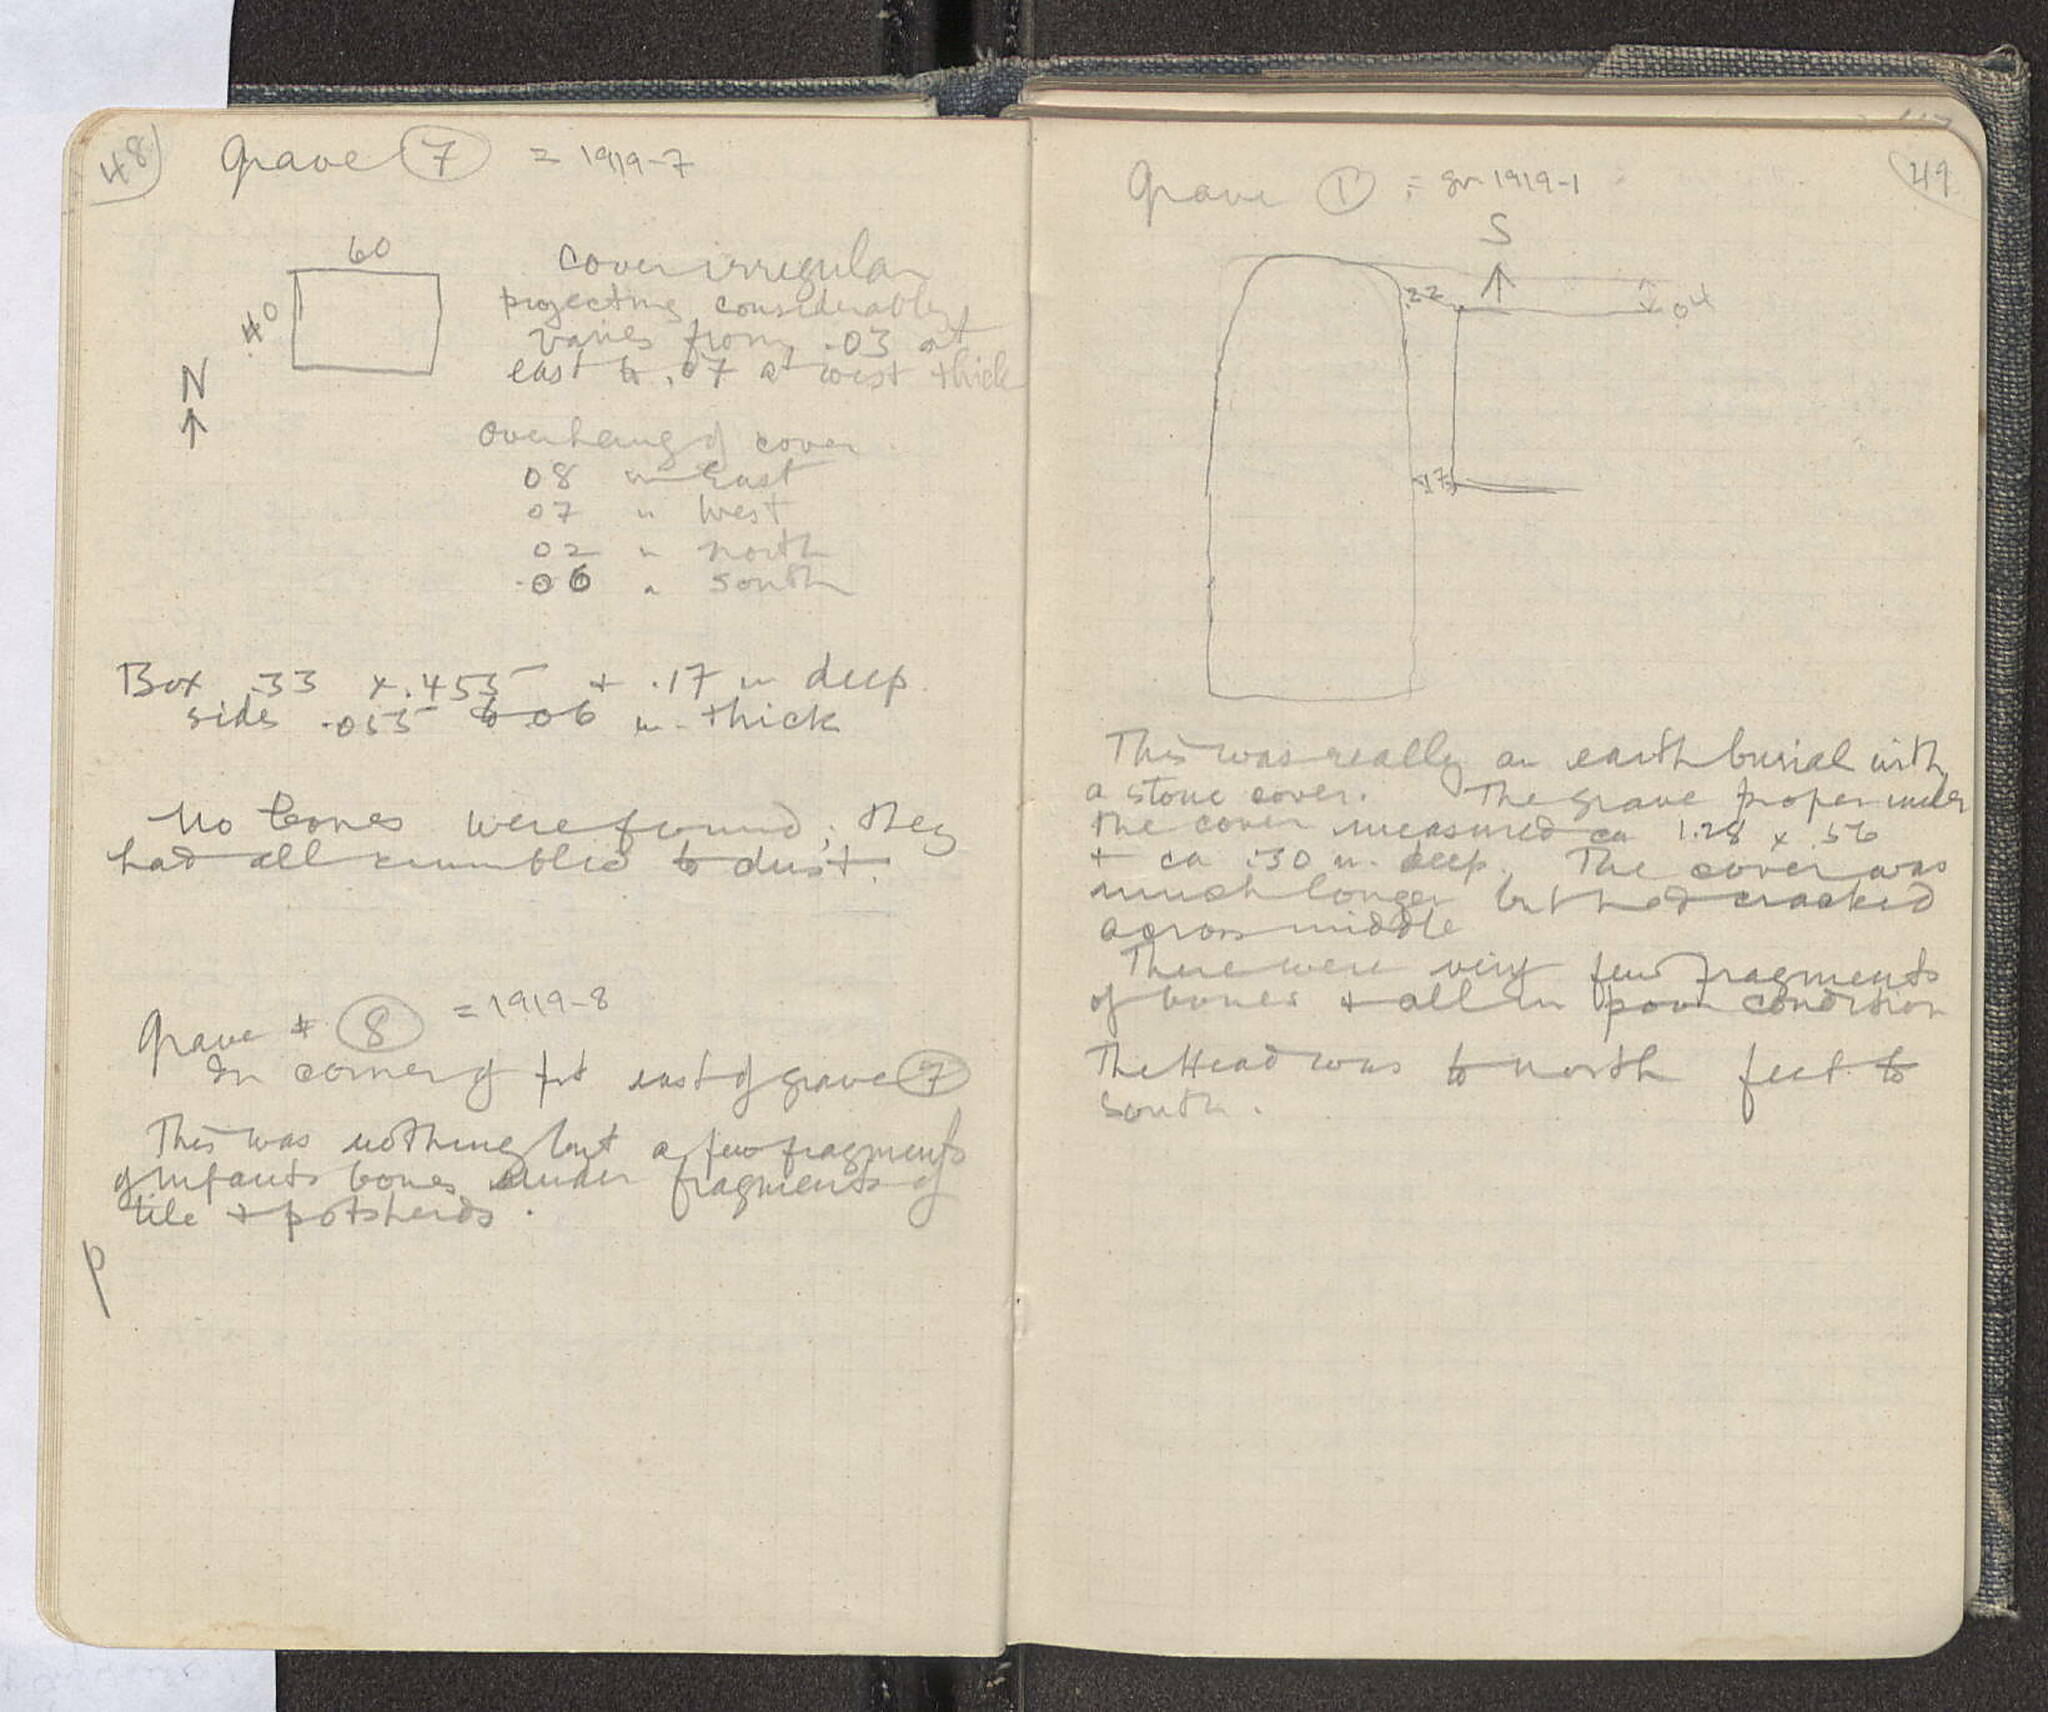 48
Grave 7 = 1919-7
60
.40
N
Cover irregular
projecting considerably
varies from .03 at
east to .07 at west thick
overhang of cover
08 m East
07 " West
02 " north
.06 " south
Box .33 x .455 + .17 m deep
sides .055 to .06 m. thick
No bones were found; they
had all crumbled to dust.
Grave # 8 = 1919-8
In corner of pit east of grave 7
This was nothing but a few fragments
of infants bones under fragments of
tile + potsherds.
p
49
Grave 1 = gr. 1919-1
S
.22
.04
.17
This was really an earth burial with
a stone cover. The grave proper under
the cover measured ca 1.28 x .56
+ ca .30 m. deep. The cover was
much longer but had cracked
across middle
There were very few fragments
of bones + all in poor condition
The Head was to north feet to
south.